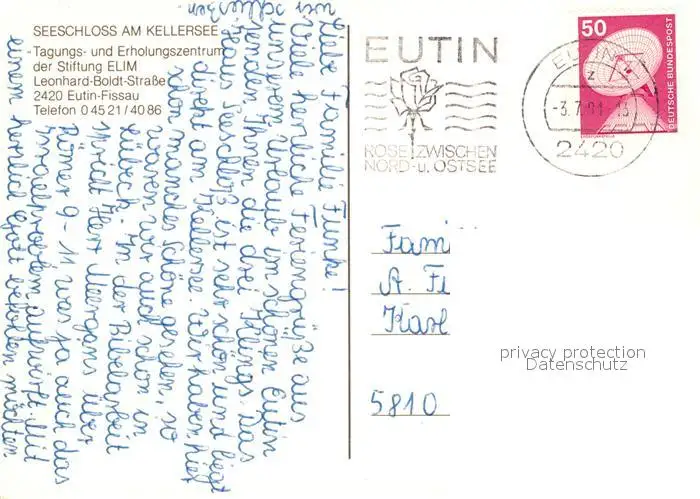 SEESCHLOSS AM KELLERSEE
Tagungs- und Erholungszentrum
der Stiftung ELIM
Leonhard-Boldt-Straße
2420 Eutin-Fissau
Telefon 0 45 21 / 40 86
Liebe Familie Funke!
Viele herzliche Feriengrüße aus
unserem Urlaub im schönen Eutin
senden Ihnen die drei Klungs. Das
Haus Seeschloß ist sehr schön und liegt
direkt am Kellersee. Wir haben hier
schon manches Schöne gesehen, so
waren wir auch schon in
Lübeck. In der Bibelarbeit
spricht Herr über
Römer 9-11 was ja auch das
Israelproblem aufwirft. Mit
einem herzlich Gott befohlen möchten
wir schließen
EUTIN
ROSE ZWISCHEN
NORD- u. OSTSEE
EUTIN
2420
50
DEUTSCHE BUNDESPOST
Fam
A. Fi
Karl
5810
privacy protection
Datenschutz